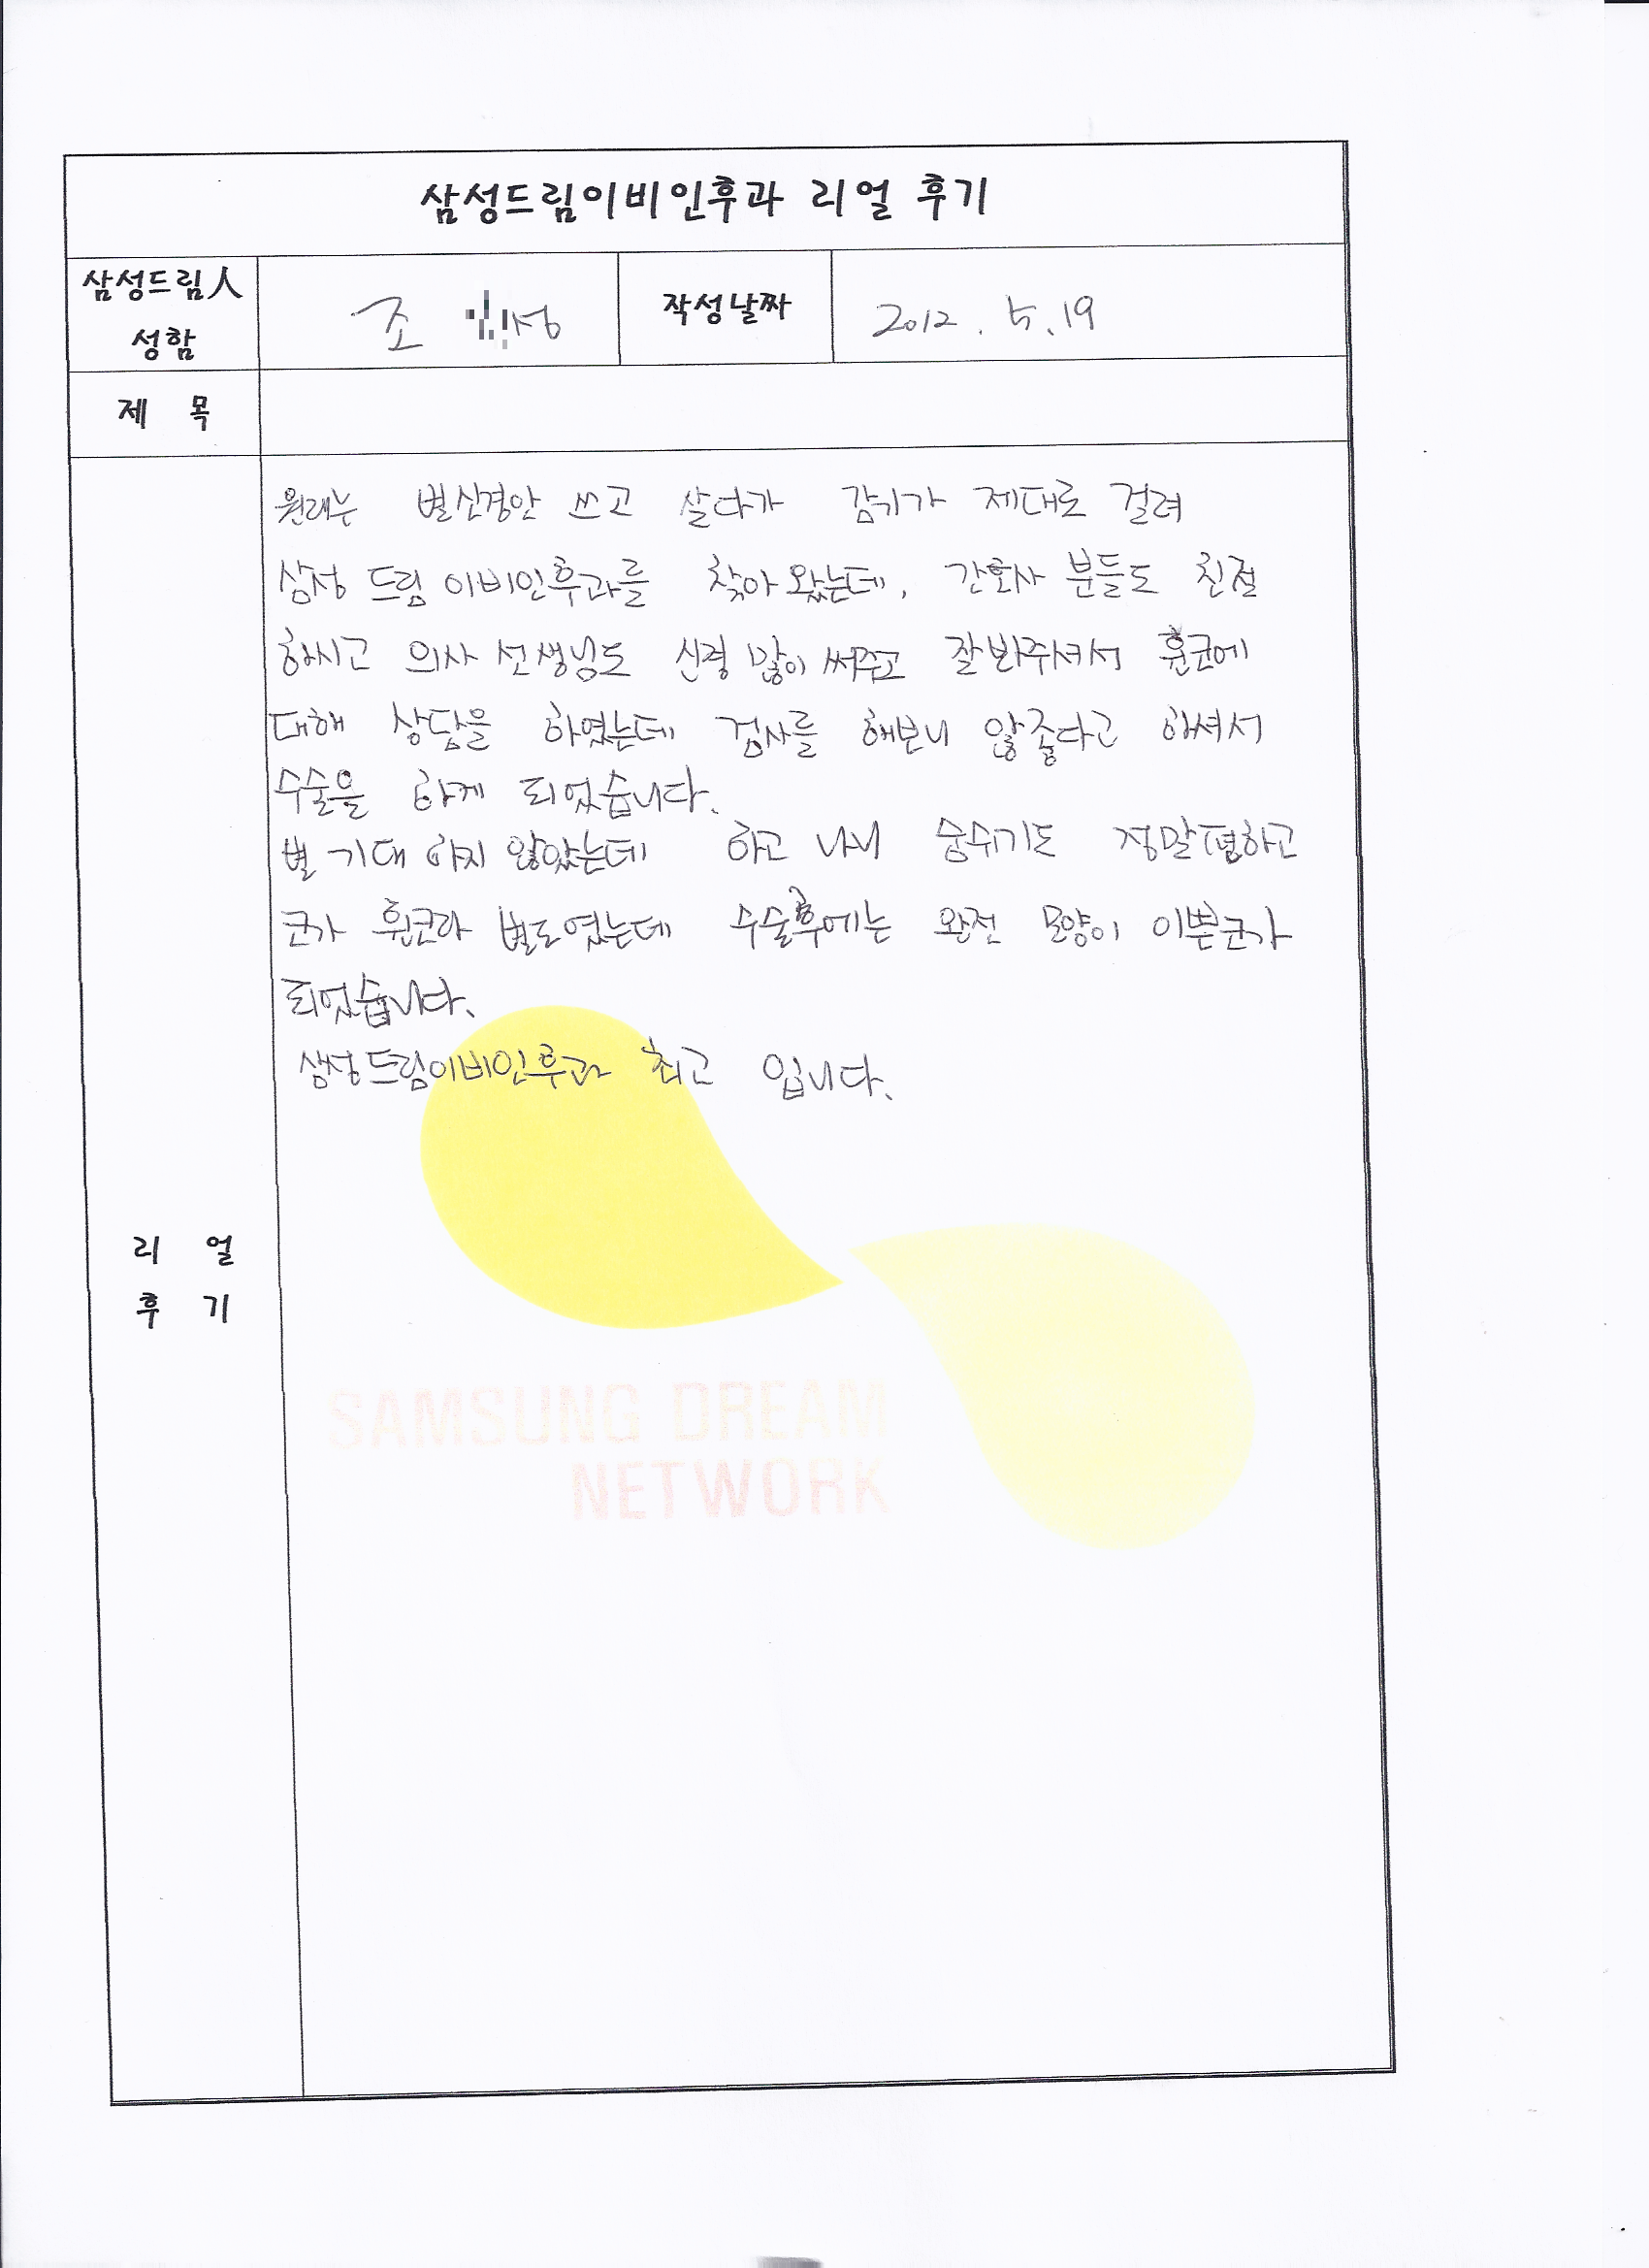 삼성드림이비인후과 리얼 후기
삼성드림人
성함
조 성
작성날짜
2012. 5. 19
제 목
원래는 별신경안 쓰고 살다가 감기가 제대로 걸려
삼성 드림 이비인후과를 찾아왔는데, 간호사 분들도 친절
하시고 의사 선생님도 신경 많이 써주고 잘봐주셔서 휜코에
대해 상담을 하였는데 검사를 해보니 않좋다고 하셔서
수술을 하게 되었습니다.
별 기대 하지 않았는데 하고 나니 숨쉬기도 정말편하고
코가 휜코라 별로였는데 수술후에는 완전 모양이 이쁜코가
되었습니다.
삼성드림이비인후과 최고 입니다.
리 얼
후 기
SAMSUNG DREAM
NETWORK